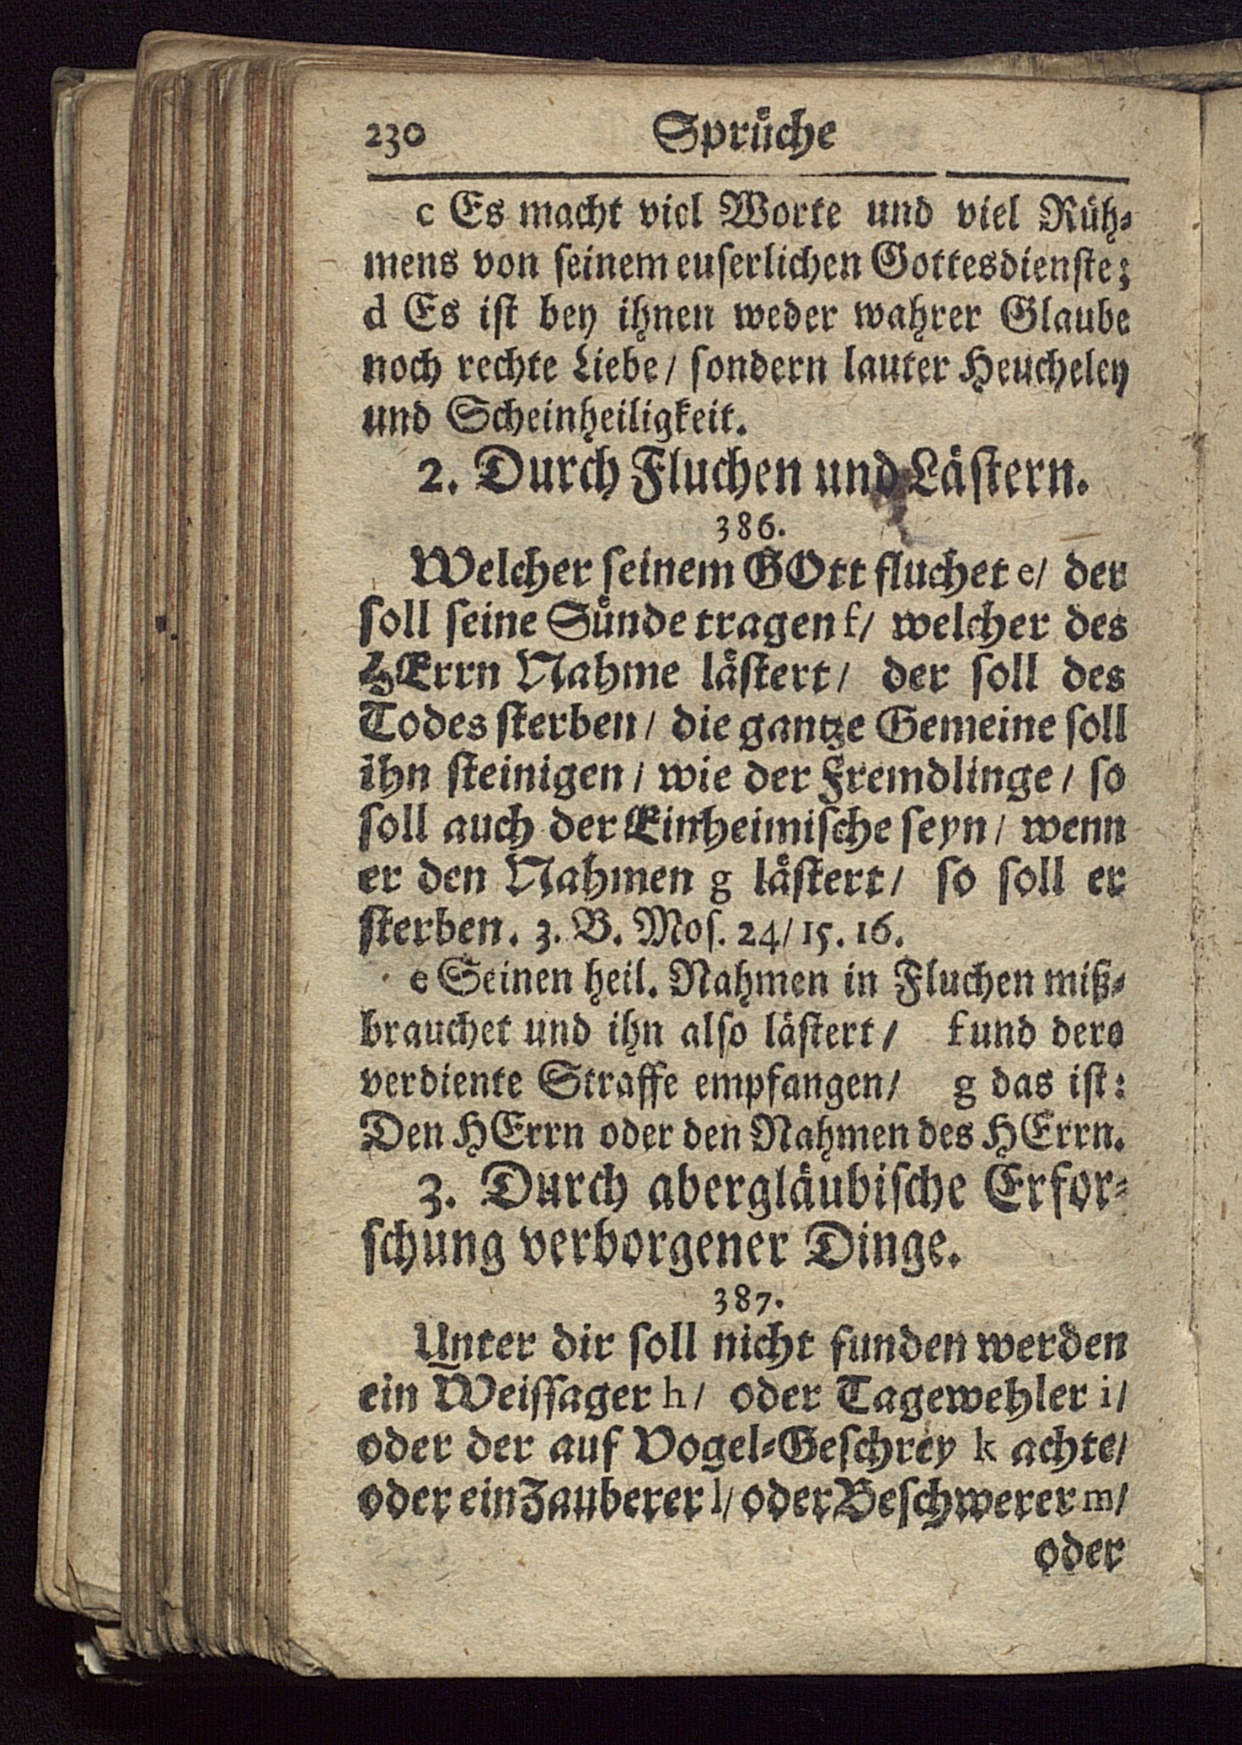 230 Sprüche
c Es macht viel Worte und viel Rüh-
mens von seinem euserlichen Gottesdienste;
d Es ist bey ihnen weder wahrer Glaube
noch rechte Liebe / sondern lauter Heucheley
und Scheinheiligkeit.
2. Durch Fluchen und Lästern.
386.
Welcher seinem GOtt fluchet e / der
soll seine Sünde tragen f / welcher des
HErrn Nahme lästert / der soll des
Todes sterben / die gantze Gemeine soll
ihn steinigen / wie der Fremdlinge / so
soll auch der Einheimische seyn / wenn
er den Nahmen g lästert / so soll er
sterben. 3. B. Mos. 24 / 15. 16.
e Seinen heil. Nahmen in Fluchen miß-
brauchet und ihn also lästert / f und dero
verdiente Straffe empfangen / g das ist:
Den HErrn oder den Nahmen des HErrn.
3. Durch abergläubische Erfor-
schung verborgener Dinge.
387.
Unter dir soll nicht funden werden
ein Weissager h / oder Tagewehler i /
oder der auf Vogel-Geschrey k achte /
oder ein Zauberer l / oder Beschwerer m /
oder